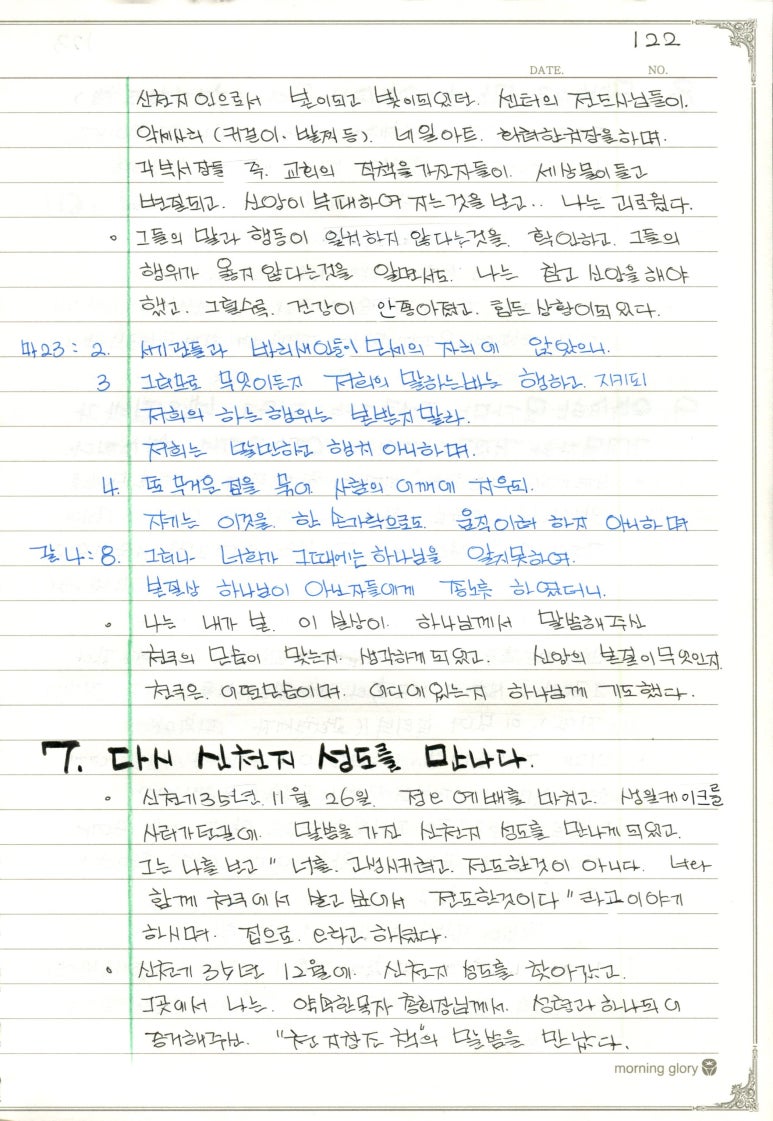 122
DATE. NO.
신천지인으로서 본이되고 빛이되었던. 센터의 전도사님들이.
악세사리 (귀걸이. 발찌 등). 네일아트. 화려한 화장을하며.
각 부서장들 즉. 교회의 직책을 가진자들이. 세상물이들고
변질되고. 신앙이 부패하여 지는것을 보고.. 나는 괴로웠다.
◦ 그들의 말과 행동이 일치하지 않다는것을. 확인하고. 그들의
행위가 옳지 않다는것을 알면서도. 나는 참고 신앙을 해야
했고. 그럴수록. 건강이 안좋아졌고. 힘든 상황이 되었다.
마23 : 2. 서기관들과 바리새인들이 모세의 자리에 앉았으니.
3 그러므로 무엇이든지 저희의 말하는바는 행하고. 지키되
저희의 하는 행위는 본받지 말라.
저희는 말만하고 행치 아니하며.
4. 또 무거운 짐을 묶어 사람의 어깨에 지우되.
자기는 이것을. 한 손가락으로도. 움직이려 하지 아니하며
갈 4 : 8. 그러나 너희가 그때에는 하나님을 알지못하여.
본질상 하나님이 아닌자들에게 종노릇 하였더니.
◦ 나는 내가 본. 이 실상이. 하나님께서 말씀해주신
천국의 모습이 맞는지 생각하게 되었고. 신앙의 본질이 무엇인지.
천국은. 어떤모습이며. 어디에 있는지 하나님께 기도했다.
7. 다시 신천지 성도를 만나다.
◦ 신천기35년. 11월 26일. 정오 예배를 마치고. 생일케이크를
사러가던길에. 말씀을 가진 신천지 성도를 만나게 되었고.
그는 나를 보고 " 너를. 고생시키려고. 전도한것이 아니다. 너랑
함께 천국에서 살고 싶어서 전도한것이다 " 라고 이야기
하시며. 집으로. 오라고 하셨다.
◦ 신천기 35년. 12월에. 신천지 성도를 찾아갔고.
그곳에서 나는. 약속한목자 총회장님께서. 성령과 하나되어
증거해주신. "천지창조 책"의 말씀을 만났다.
morning glory